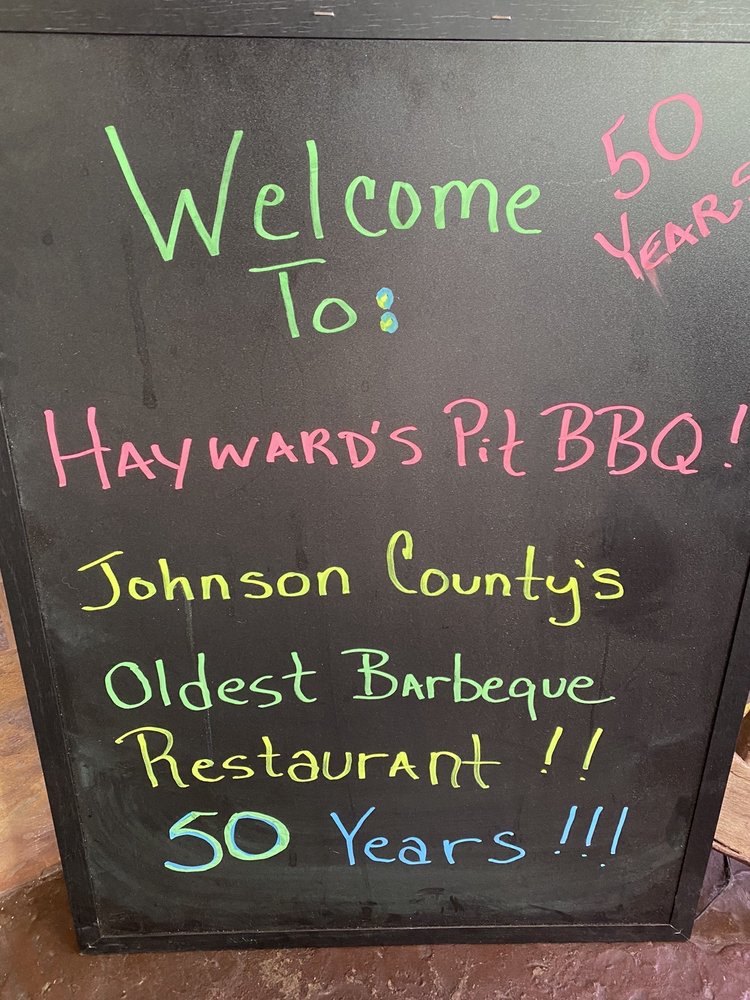 Welcome
To:
50
YEARS
HAYWARD'S Pit BBQ!
Johnson County's
Oldest Barbeque
Restaurant !!
50 Years !!!